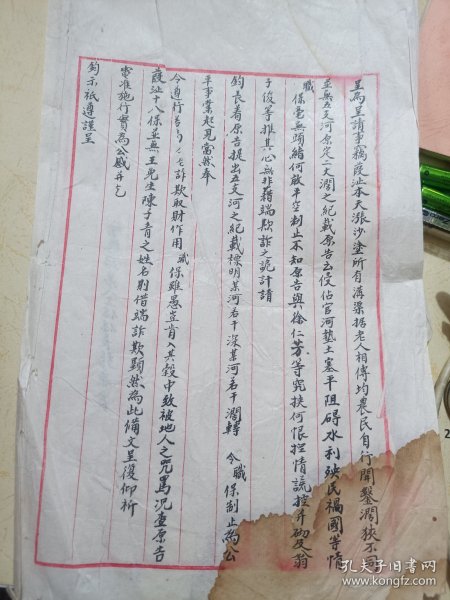 呈為呈請事竊葭沚本天漲沙塗所有溝渠據老人相傳均農民自行開鑿濶狹不同
並無五支河原定二丈濶之紀載原告云侵佔官河墊土塞平阻碍水利殃民禍國等情
職保毫無頭緒何敢平空制止不知原告與徐仁芳等究挾何恨控情謊控並砌及翁
子俊等推其心無非藉端欺詐之詭計請
鈞長着原告提出五支河之紀載標明某河若干深某河若干濶轉令職保制止為公
平事業起見當然奉
今遵行
詐欺取財作用職保雖愚豈肯入其彀中致被地人之咒罵况查原告
葭沚十八保並無王先生陳子青之姓名則借端詐欺顯然為此備文呈復仰祈
當准施行實為公感并乞
鈞示祇遵謹呈
孔夫子旧书网
https://kongfz.com/